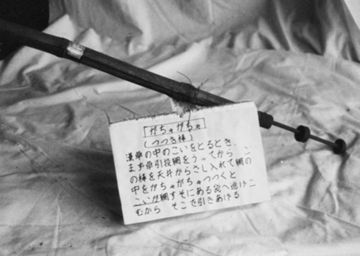 「がちゃがちゃ」
(つつき棒)
藻草の中のこいをとるとき、
まず卆引投網をうってから、こ
の棒を天井からさし入れて網の
中をがちゃがちゃつつくと
こいが網すそにある袋へ逃げこ
むから そこで引きあげる